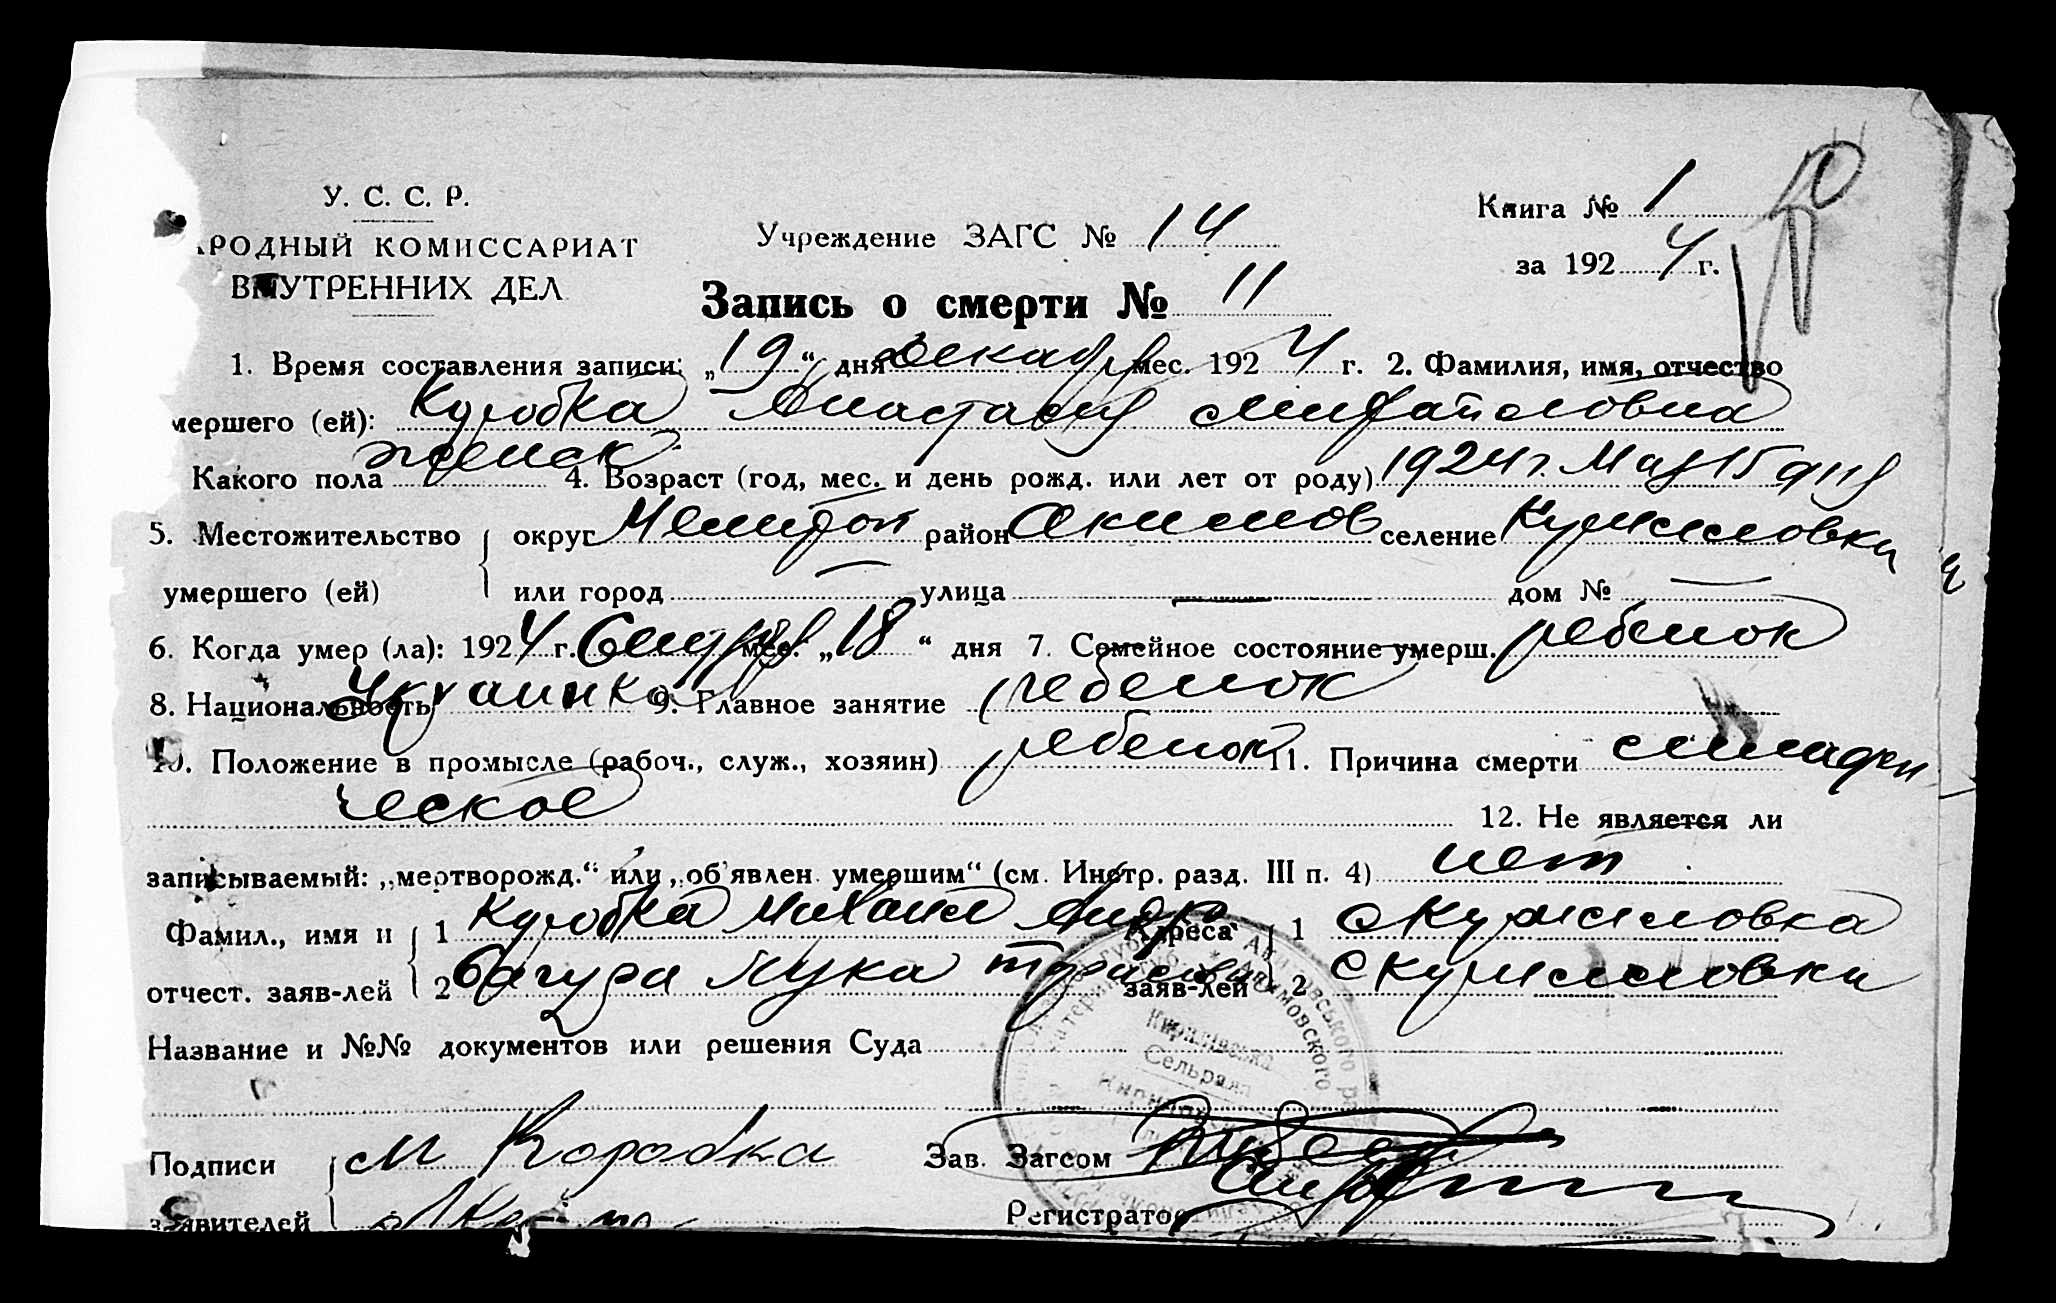 У. С. С. Р.
РОДНЫЙ КОМИССАРИАТ
ВНУТРЕННИХ ДЕЛ
Учреждение ЗАГС № 14
Книга № 1
за 1924 г.
Запись о смерти № 11
1. Время составления записи: „19“ дня Декабря мес. 1924 г. 2. Фамилия, имя, отчество
мершего (ей): Коробка Анастасия Михайловна
Какого пола женск. 4. Возраст (год, мес. и день рожд. или лет от роду) 1924 г. Мая 15 дня
5. Местожительство округ Мелитоп район Акимов селение
умершего (ей) или город — улица — дом № —
6. Когда умер (ла): 1924 г. мес. „18“ дня 7. Семейное состояние умерш. ребенок
8. Национальность Украинка 9. Главное занятие ребенок
10. Положение в промысле (рабоч., служ., хозяин) ребенок 11. Причина смерти
ческое
12. Не является ли
записываемый: „мертворожд.“ или „об'явлен умершим“ (см. Инстр. разд. III п. 4) нет
Фамил., имя и 1 Коробка Михаил Андр Адреса 1
отчест. заяв-лей 2 Лука заяв-лей 2
Название и №№ документов или решения Суда
Подписи М Коробка Зав. Загсом
заявителей Регистратор